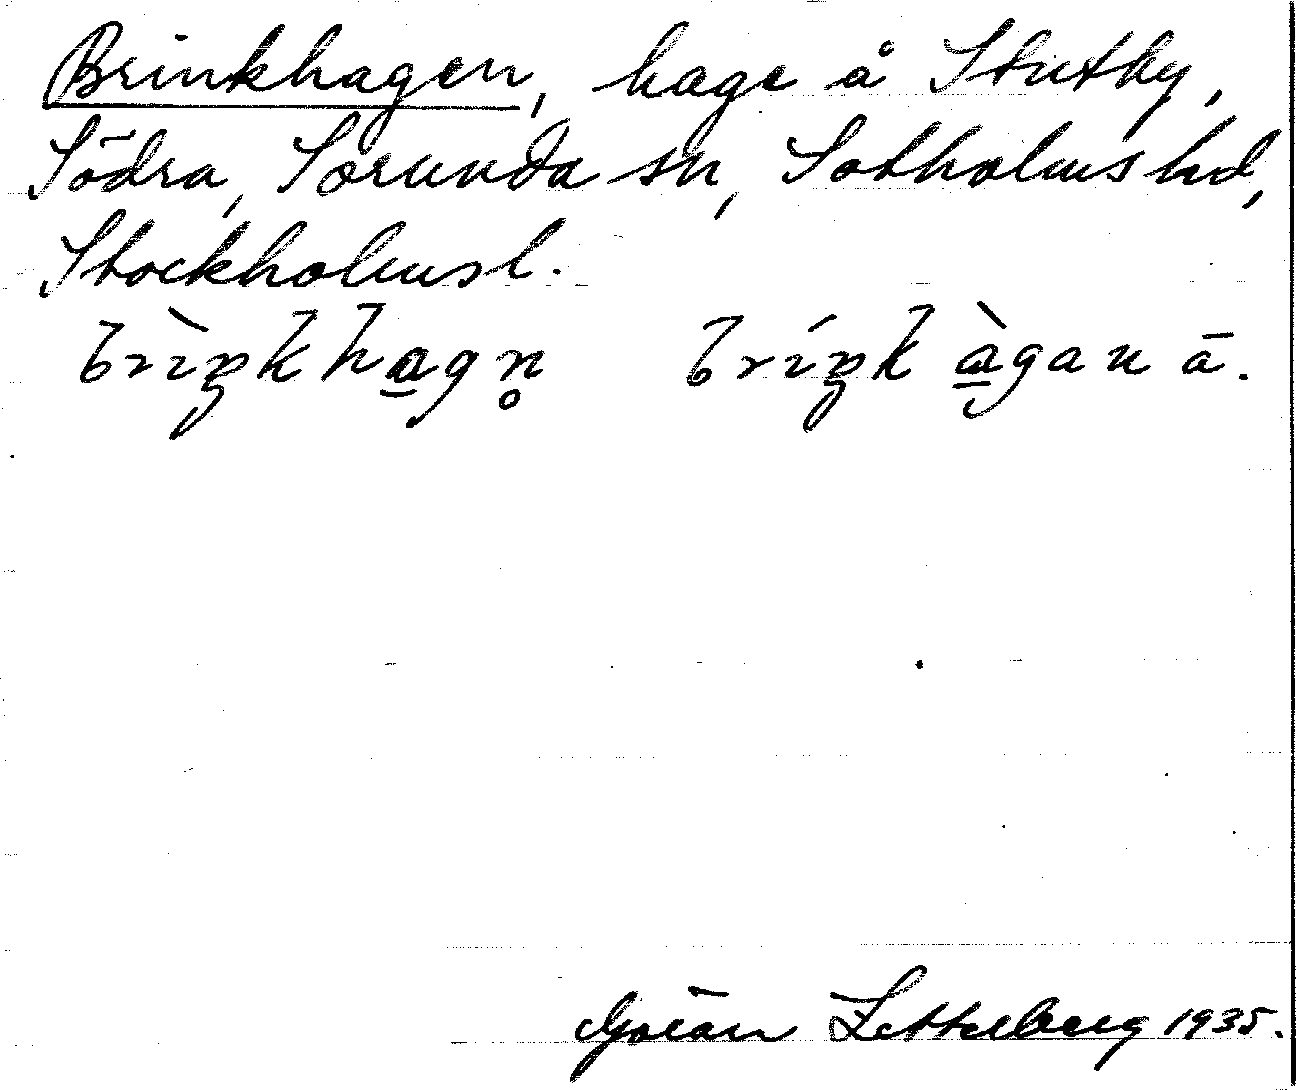 Brinkhagen, hage å Stutby,
Södra, Sorunda sn, Sotholms hd,
Stockholms l.
brìŋkhagn̥ bríŋkàgan ā.
Göran Zetterberg 1935.